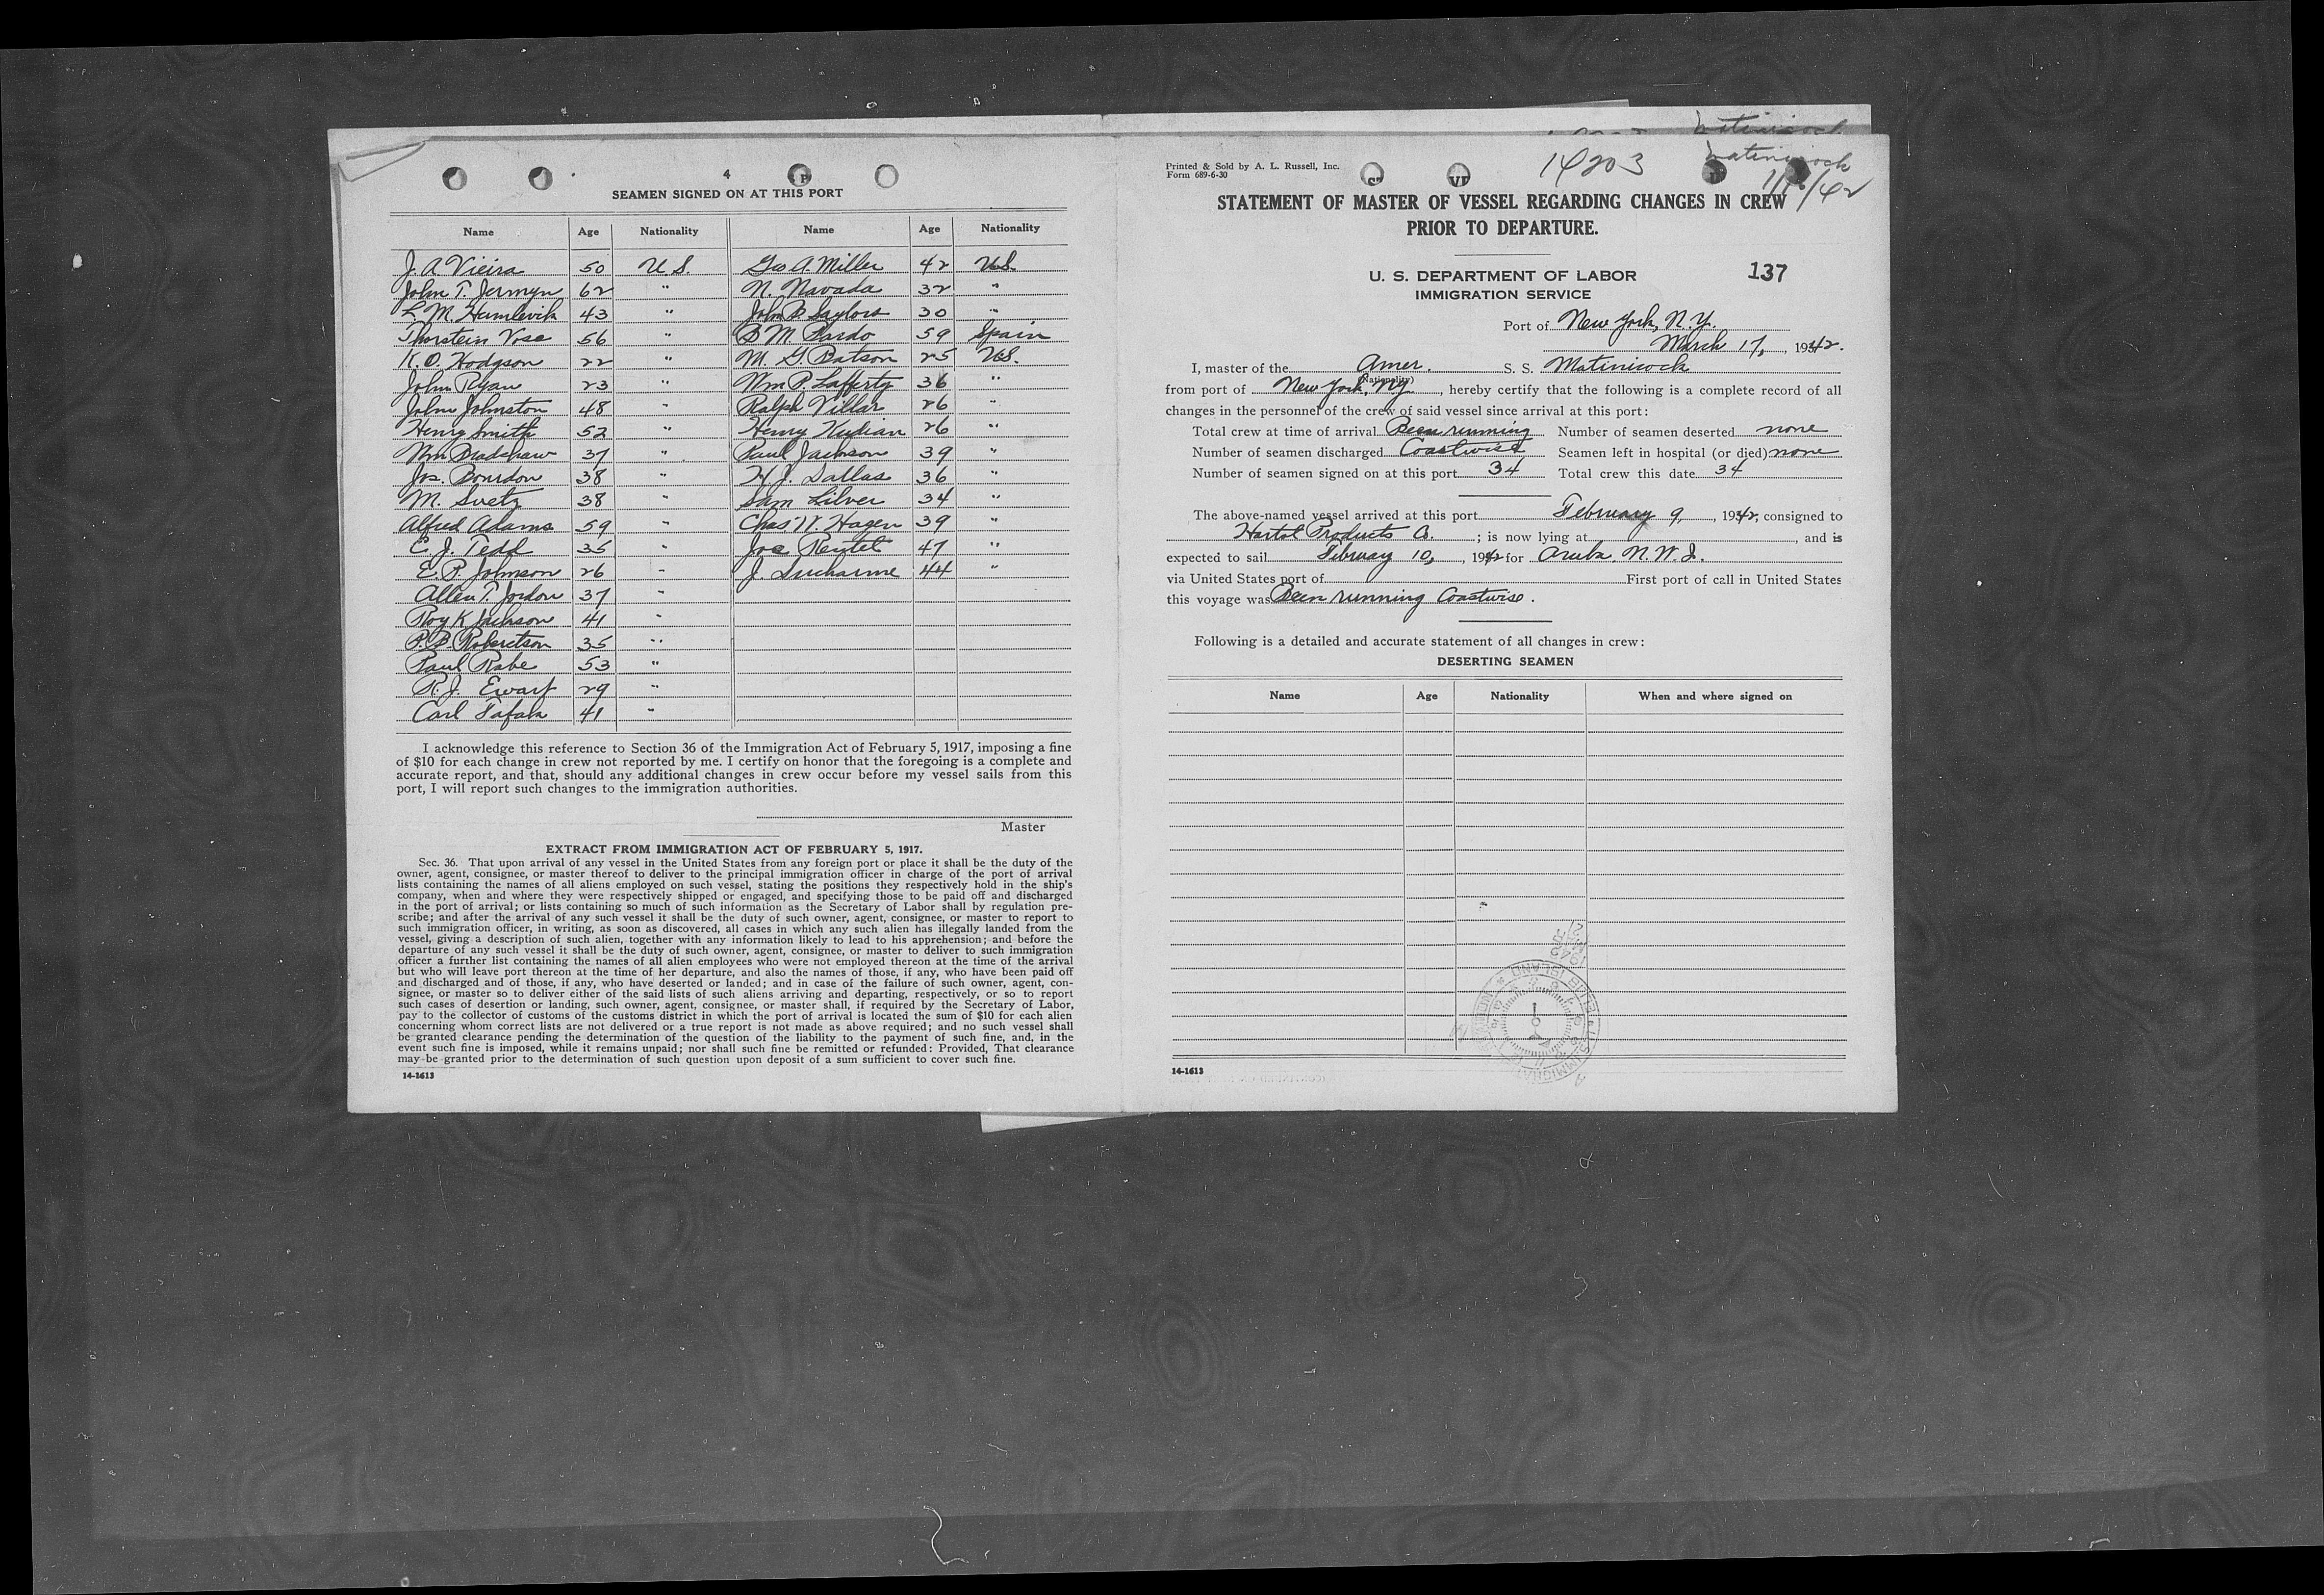 4
SEAMEN SIGNED ON AT THIS PORT
Name Age Nationality Name Age Nationality
J. A. Vieira 50 U.S. Geo A. Miller 42 U.S.
John T. Jermyn 62 " N. Navada 32 "
L. M. 43 " John B. Saylors 30 "
Thorstein Vose 56 " B M. Pardo 59 Spain
K. O. Hodgson 22 " M. G Batson 25 U.S.
John Ryan 23 " Wm P. Lafferty 36 "
John Johnston 48 " Ralph Villar 26 "
Henry Smith 52 " Henry 26 "
Wm Bradshaw 37 " Paul Jackson 39 "
Jos. Bourdon 38 " H. J. Dallas 36 "
M. Suetz 38 " Sam Silver 34 "
Alfred Adams 59 " Chas W. Hagen 39 "
E. J. Tedd 35 " Joe 47 "
E. P. Johnson 26 " J. Ducharme 44 "
Allen T. Jordon 37 "
Roy K Jackson 41 "
P. B. Robertson 35 "
Paul Rabe 53 "
R. J. Ewart 29 "
Carl 41 "
I acknowledge this reference to Section 36 of the Immigration Act of February 5, 1917, imposing a fine
of $10 for each change in crew not reported by me. I certify on honor that the foregoing is a complete and
accurate report, and that, should any additional changes in crew occur before my vessel sails from this
port, I will report such changes to the immigration authorities.
Master
EXTRACT FROM IMMIGRATION ACT OF FEBRUARY 5, 1917.
Sec. 36. That upon arrival of any vessel in the United States from any foreign port or place it shall be the duty of the
owner, agent, consignee, or master thereof to deliver to the principal immigration officer in charge of the port of arrival
lists containing the names of all aliens employed on such vessel, stating the positions they respectively hold in the ship's
company, when and where they were respectively shipped or engaged, and specifying those to be paid off and discharged
in the port of arrival; or lists containing so much of such information as the Secretary of Labor shall by regulation pre-
scribe; and after the arrival of any such vessel it shall be the duty of such owner, agent, consignee, or master to report to
such immigration officer, in writing, as soon as discovered, all cases in which any such alien has illegally landed from the
vessel, giving a description of such alien, together with any information likely to lead to his apprehension; and before the
departure of any such vessel it shall be the duty of such owner, agent, consignee, or master to deliver to such immigration
officer a further list containing the names of all alien employees who were not employed thereon at the time of the arrival
but who will leave port thereon at the time of her departure, and also the names of those, if any, who have been paid off
and discharged and of those, if any, who have deserted or landed; and in case of the failure of such owner, agent, con-
signee, or master so to deliver either of the said lists of such aliens arriving and departing, respectively, or so to report
such cases of desertion or landing, such owner, agent, consignee, or master shall, if required by the Secretary of Labor,
pay to the collector of customs of the customs district in which the port of arrival is located the sum of $10 for each alien
concerning whom correct lists are not delivered or a true report is not made as above required; and no such vessel shall
be granted clearance pending the determination of the question of the liability to the payment of such fine, and, in the
event such fine is imposed, while it remains unpaid; nor shall such fine be remitted or refunded: Provided, That clearance
may be granted prior to the determination of such question upon deposit of a sum sufficient to cover such fine.
14-1613
Matinicock
Printed & Sold by A. L. Russell, Inc.
Form 689-6-30
14203
Matinicock
STATEMENT OF MASTER OF VESSEL REGARDING CHANGES IN CREW
PRIOR TO DEPARTURE.
U. S. DEPARTMENT OF LABOR
137
IMMIGRATION SERVICE
Port of New York, N.Y.
March 17, 1942.
I, master of the Amer. S. S. Matinicock
(Nationality)
from port of New York, NY, hereby certify that the following is a complete record of all
changes in the personnel of the crew of said vessel since arrival at this port:
Total crew at time of arrival Been running Number of seamen deserted none
Number of seamen discharged Coastwise Seamen left in hospital (or died) none
Number of seamen signed on at this port 34 Total crew this date 34
The above-named vessel arrived at this port February 9, 1942, consigned to
Hartol Products Co. ; is now lying at , and is
expected to sail February 10, 1942 for Aruba, N.W.I.
via United States port of First port of call in United States
this voyage was Been running Coastwise.
Following is a detailed and accurate statement of all changes in crew:
DESERTING SEAMEN
Name Age Nationality When and where signed on
14-1613